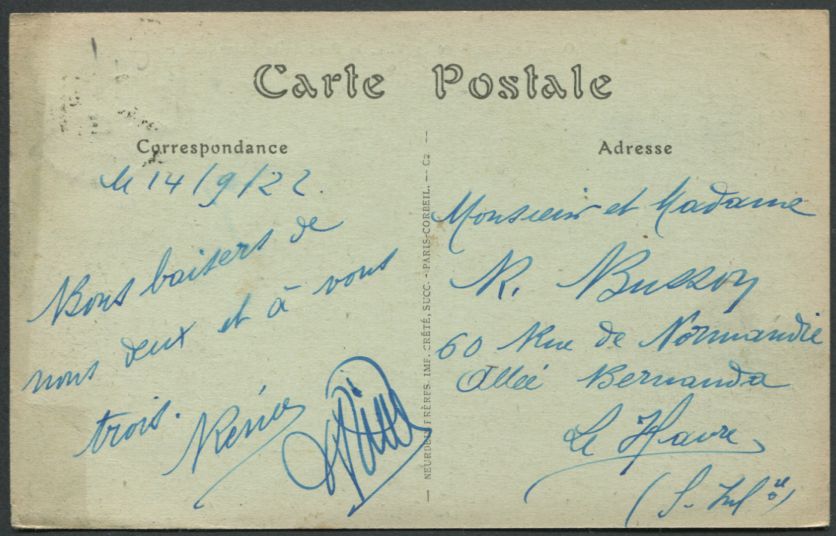 Carte Postale
Correspondance
Adresse
le 14/9/22.
Bons baisers de
nous deux et à vous
trois.
Renée
NEURDEIN FRÈRES. IMP. CRÉTÉ, SUCC. - PARIS-CORBEIL. — C2
Monsieur et Madame
R. Busson
60 Rue de Normandie
Allée Bernanda
Le Havre
(S. Inf re)